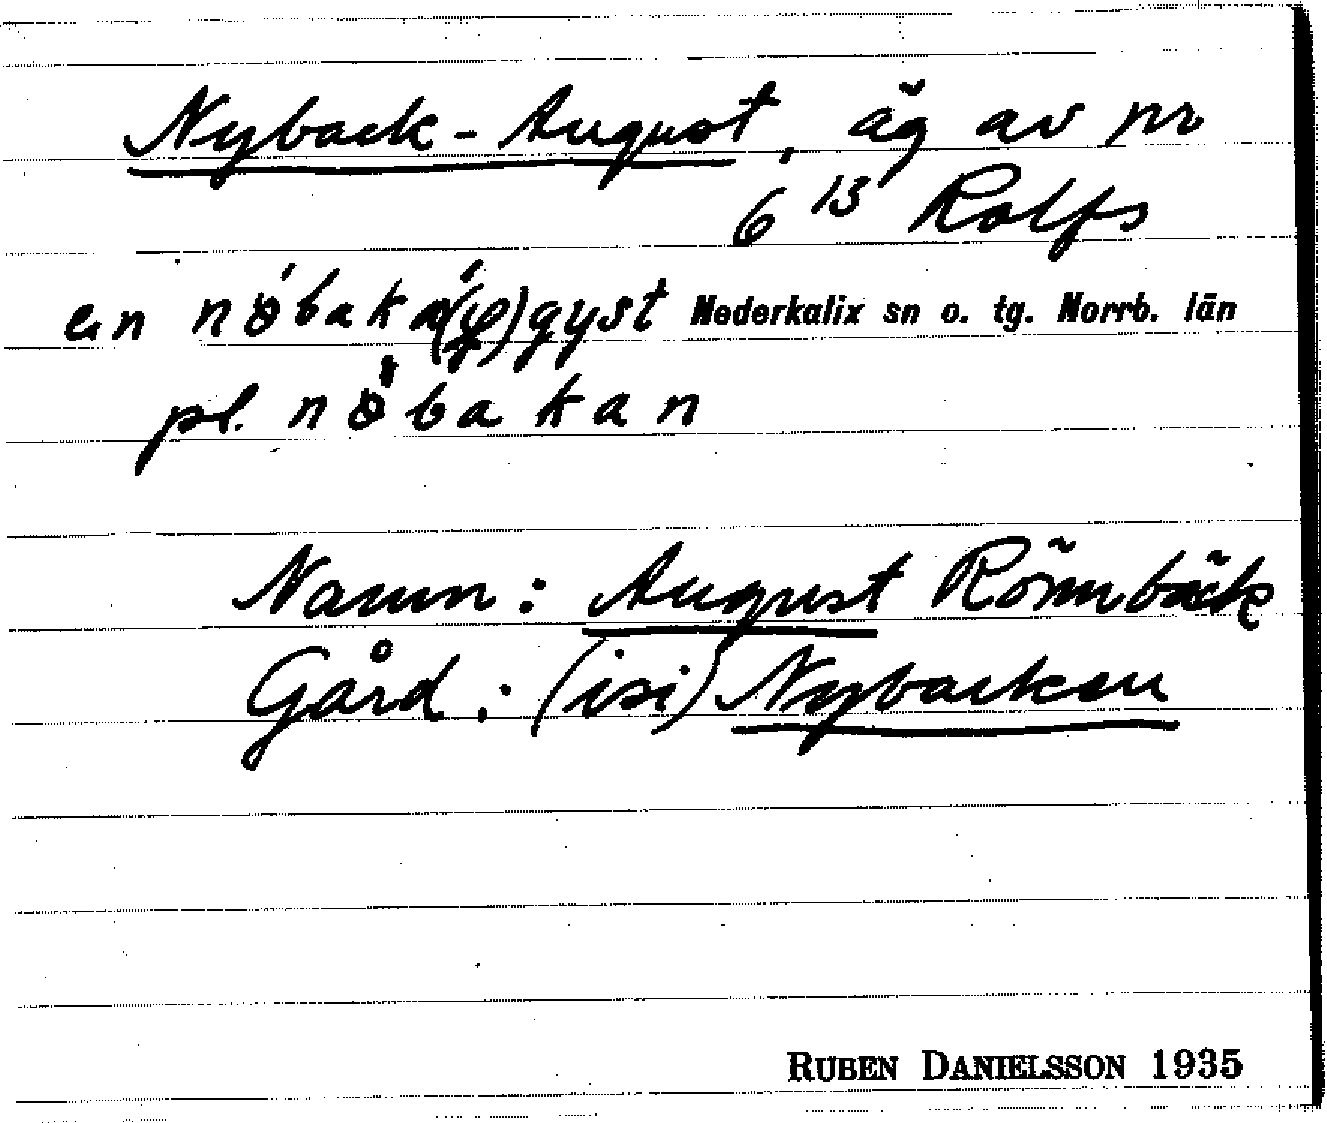 Nyback-August, äg av nr
6 13 Rolfs
en nöbaka(φ)gyst Nederkalix sn o. tg. Norrb. län
pl. nöbakan
Namn: August Rönnbäck
Gård: (isi) Nybacken
RUBEN DANIELSSON 1935